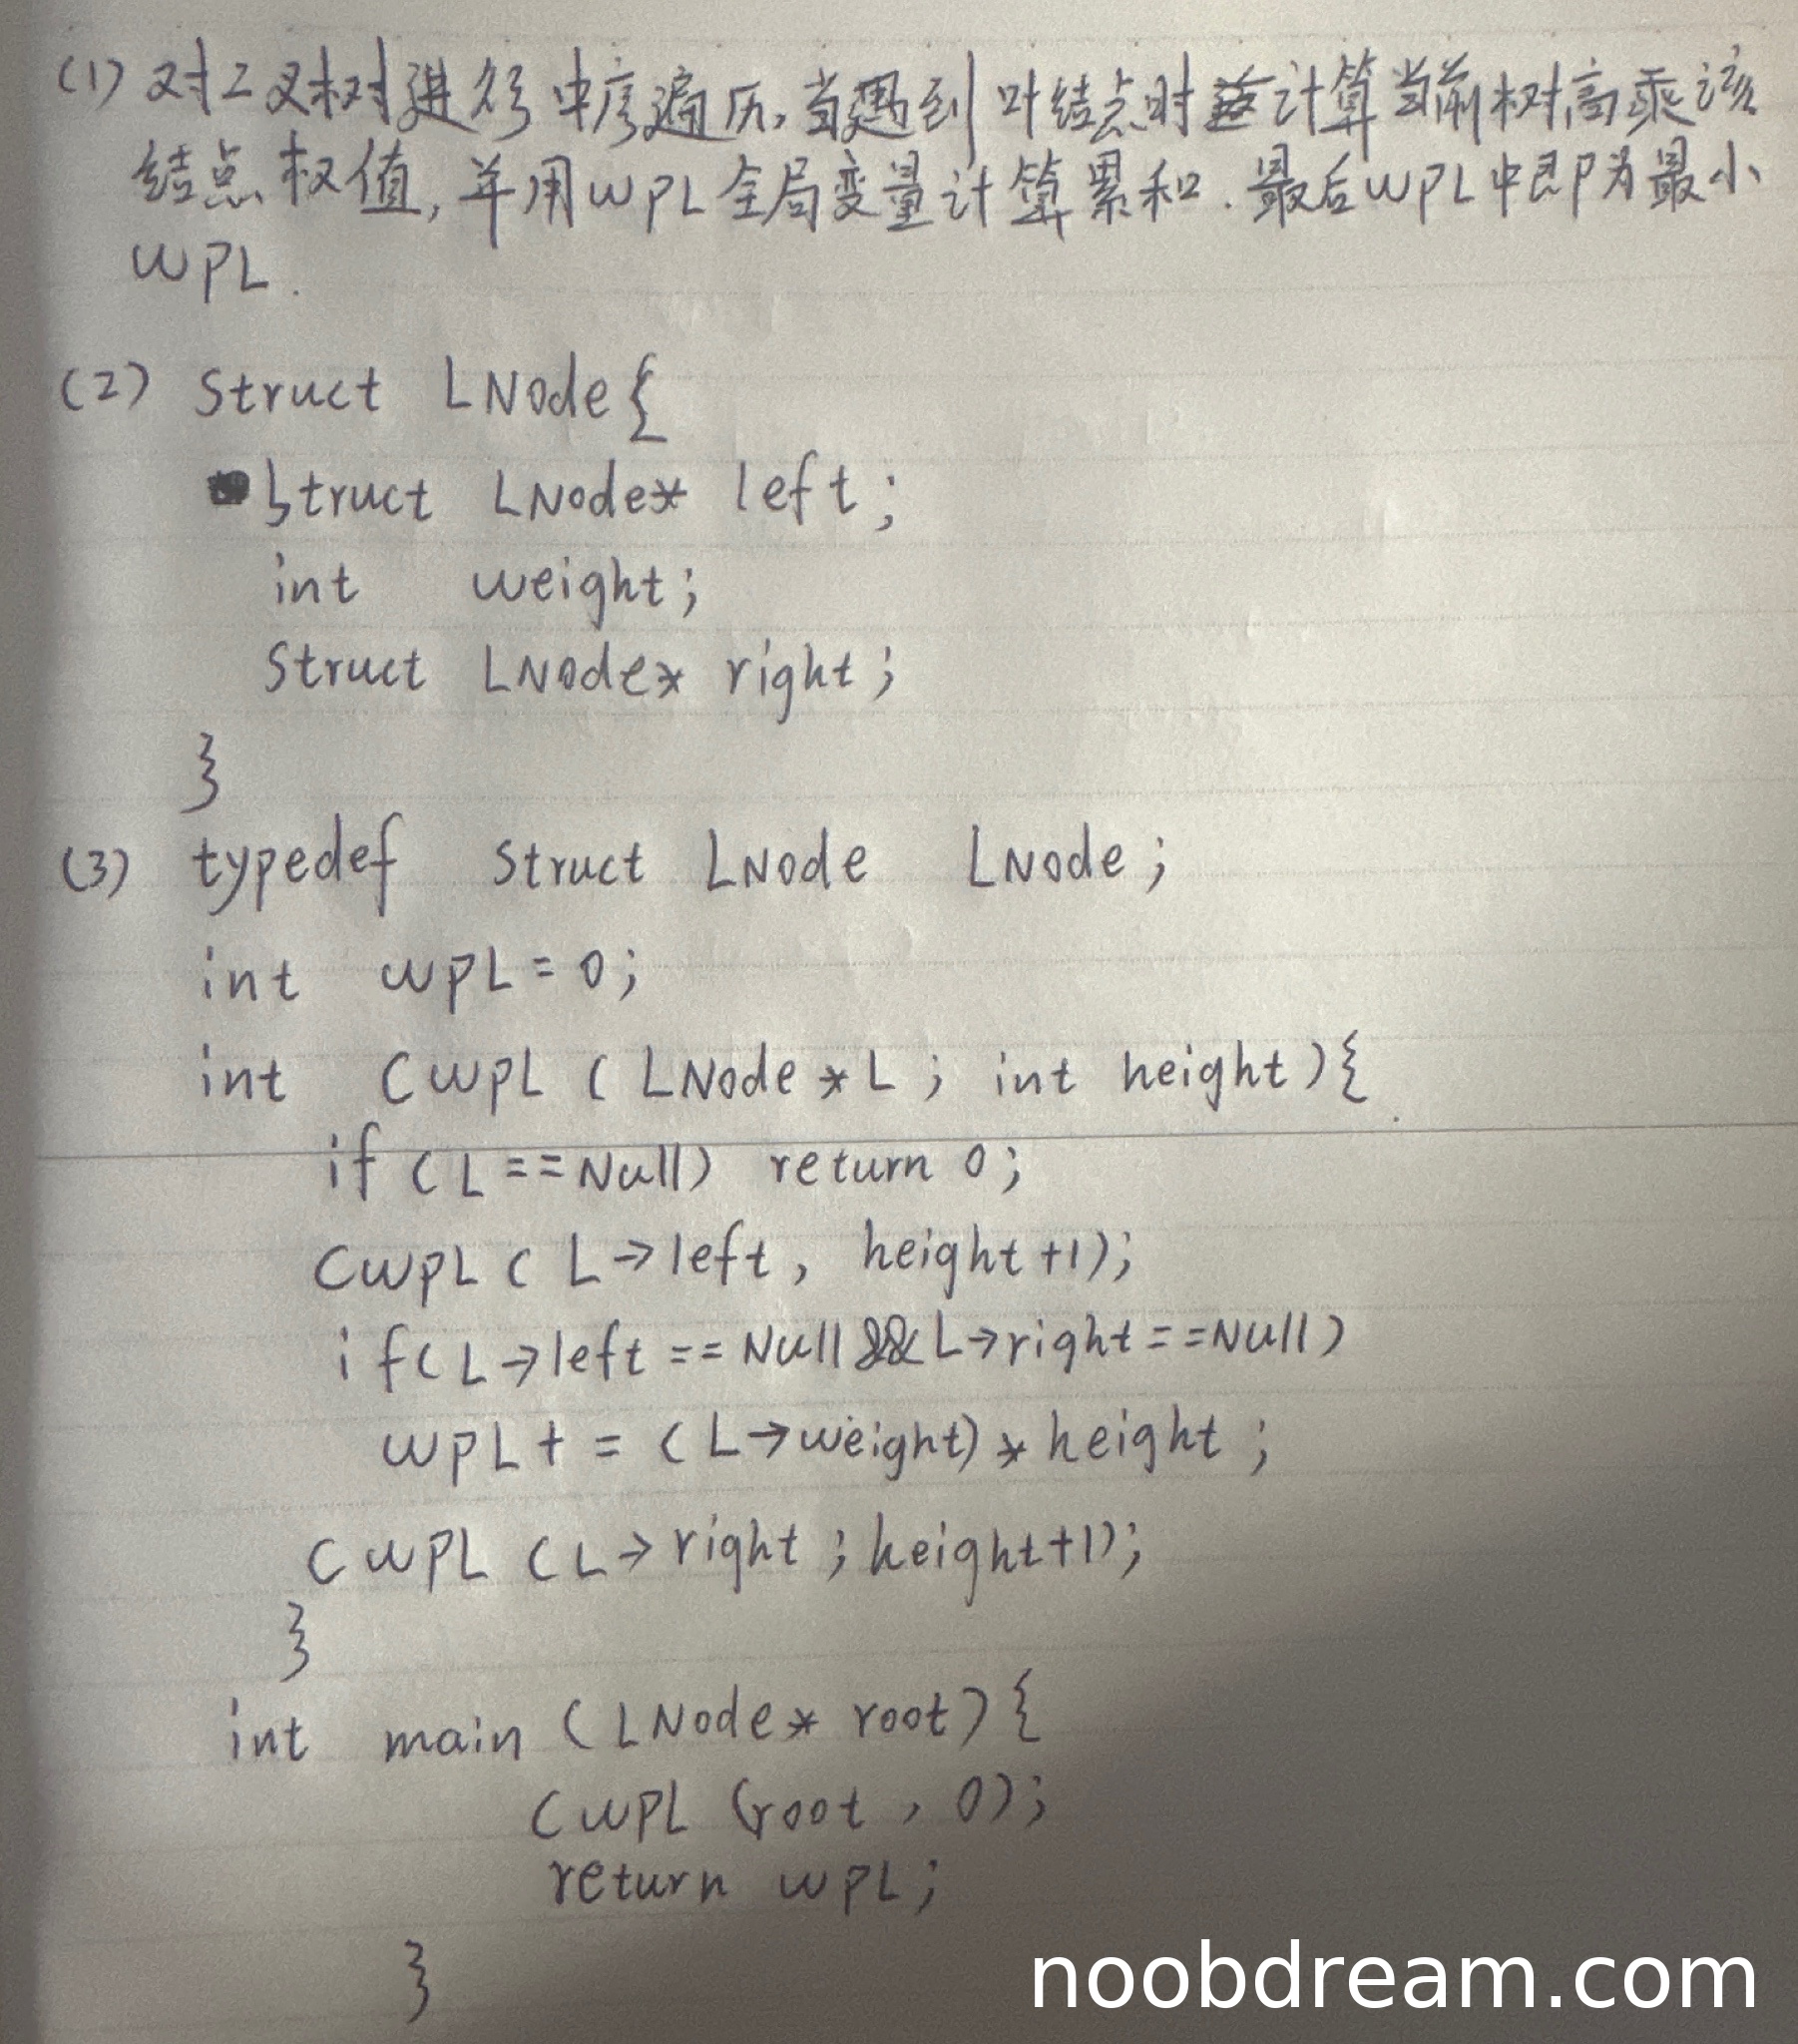 (1) 对二叉树进行中序遍历,当遇到叶结点时计算当前树高乘该
结点权值,并用WPL全局变量计算累和.最后WPL中即为最小
WPL.
(2) struct LNode{
struct LNode* left;
int weight;
struct LNode* right;
}
(3) typedef struct LNode LNode;
int WPL=0;
int CWPL(LNode*L; int height){
if(L==Null) return 0;
CWPL(L→left, height+1);
if(L→left==Null&&L→right==Null)
WPL+=(L→weight)*height;
CWPL(L→right;height+1);
}
int main(LNode* root){
CWPL(root, 0);
return WPL;
}
noobdream.com